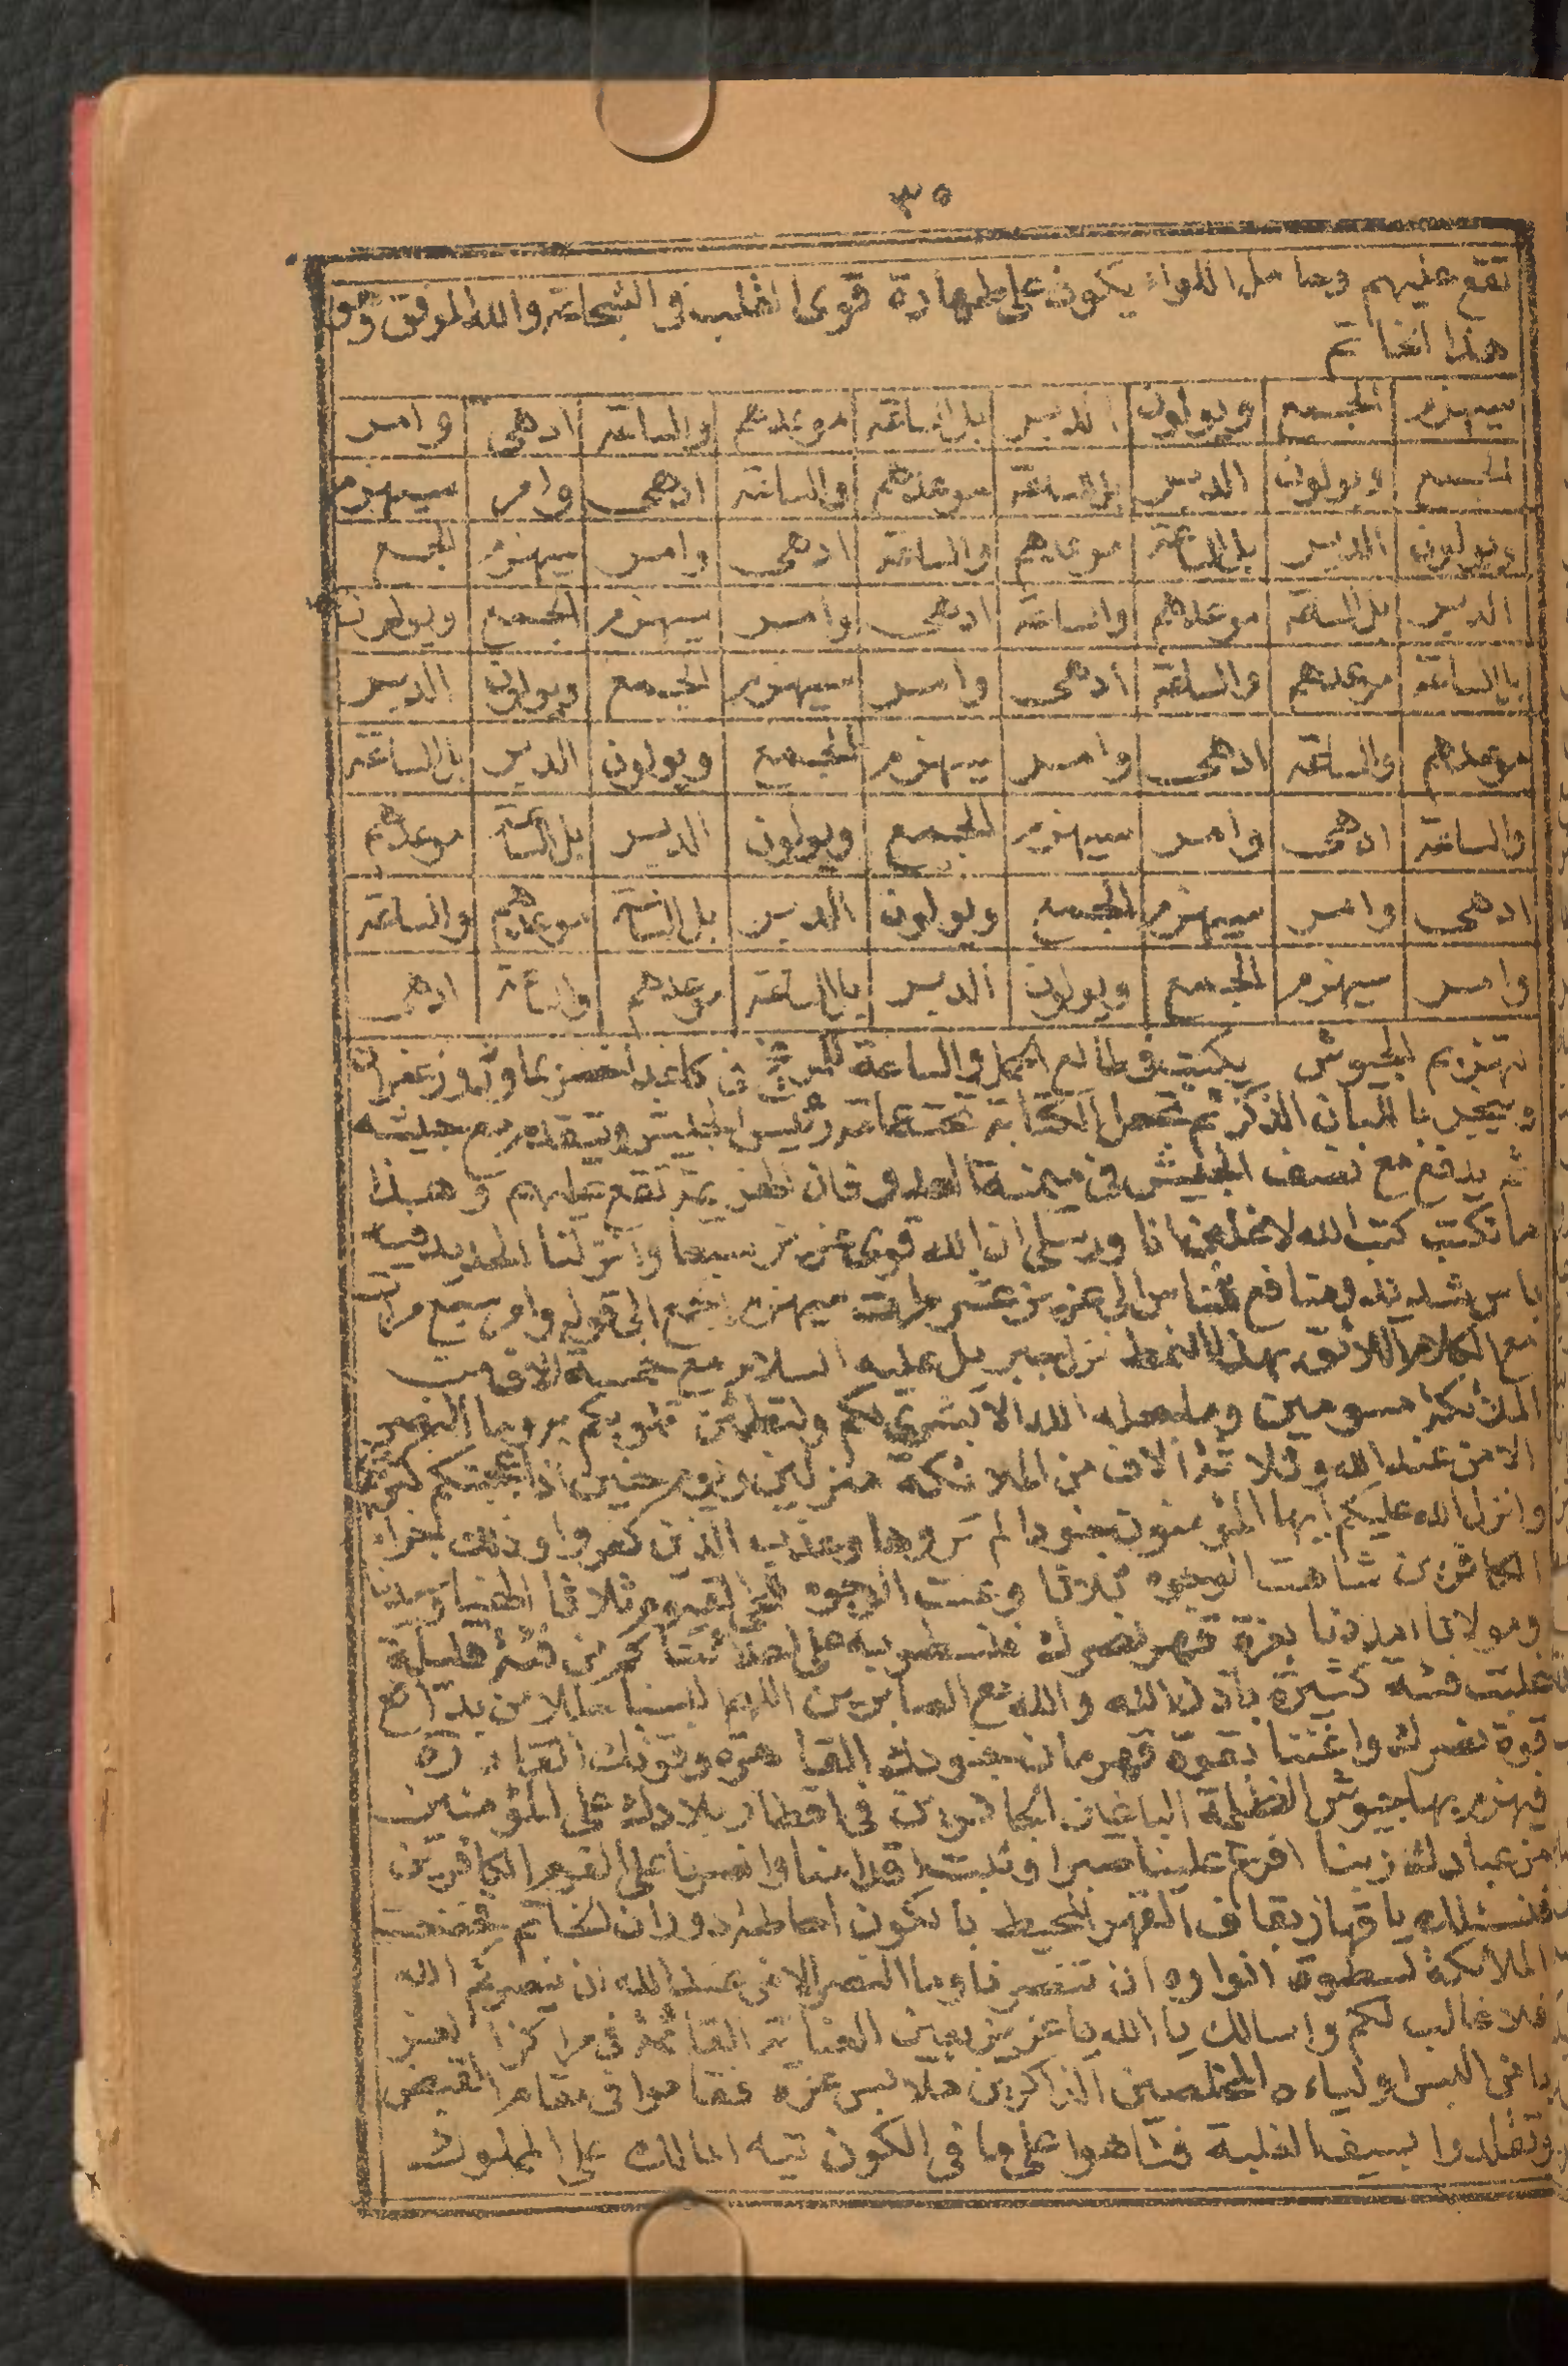 ٣٥
تقع عليهم وحامل اللواء يكون على طهارة قوى القلب في الشجاعة والله الموفق وهو
هذا الخاتم
سيهزم الجمع ويولون الدبر بل الساعة موعدهم والساعة ادهى وامر
الجمع ويولون الدبر بل الساعة موعدهم والساعة ادهى وامر سيهزم
ويولون الدبر بل الساعة موعدهم والساعة ادهى وامر سيهزم الجمع
الدبر بل الساعة موعدهم والساعة ادهى وامر سيهزم الجمع ويولون
بل الساعة موعدهم والساعة ادهى وامر سيهزم الجمع ويولون الدبر
موعدهم والساعة ادهى وامر سيهزم الجمع ويولون الدبر بل الساعة
والساعة ادهى وامر سيهزم الجمع ويولون الدبر بل الساعة موعدهم
ادهى وامر سيهزم الجمع ويولون الدبر بل الساعة موعدهم والساعة
وامر سيهزم الجمع ويولون الدبر بل الساعة موعدهم والساعة ادهى
تهزيم الجيوش يكتب في طالع الحمل والساعة للمريخ في كاغد اخضر بماورد وزعفران
ويبخر بالبان الذكر ثم تجعل الكتابة تحت عمامة رئيس الجيش ويتقدم مع جيشه
ثم يدفع مع نصف الجيش في ميمنة العدو فان الهزيمة تقع عليهم وهذا
ما تكتب كتب الله لاغلبن انا ورسلى ان الله قوى عزيز سبعا وانزلنا الحديد فيه
باس شديد ومنافع للناس الى عزيز عشر مرات سيهزم الجمع الى قوله وامر سبع مرات
مع الكلام اللائق بهذا النمط نزل جبريل عليه السلام مع خمسة الاف من
الملائكة مسومين وما جعله الله الا بشرى لكم ولتطمئن قلوبكم به وما النصر
الا من عند الله وثلاثة الاف من الملائكة منزلين ويوم حنين اذ اعجبتكم كثرتكم
وانزل الله عليكم ايها المؤمنون جنودا لم تروها وعذب الذين كفروا وذلك جزاء
الكافرين شاهت الوجوه ثلاثا وعنت الوجوه للحى القيوم ثلاثا الهنا وسيدنا
ومولانا امددنا بعزة قهر نصرك فنسطو به على اعدائنا كم من فئة قليلة
غلبت فئة كثيرة باذن الله والله مع الصابرين اللهم البسنا حللا من بدائع
قوة نصرك واغثنا بقوة قهرمان جنودك القاهرة وقوتك القادرة
فيهزم بها جيوش الظلمة الباغين الكافرين في اقطار بلادك على المؤمنين
من عبادك ربنا افرغ علينا صبرا وثبت اقدامنا وانصرنا على القوم الكافرين
فنسئلك ياقهار بقاف القهر المحيط بالكون احاطة دوران الخاتم فخضعت
الملائكة لسطوة انواره ان تنصرنا وما النصر الا من عند الله ان ينصركم الله
فلا غالب لكم واسالك يا الله يا عزيز بعين العناية القائمة في مراكز العز
يا من البس اولياءه المخلصين الذاكرين ملابس عزة فقاموا في مقام القبض
وتقلدوا بسيف الغلبة فتاهوا على ما في الكون تيه المالك على المملوك